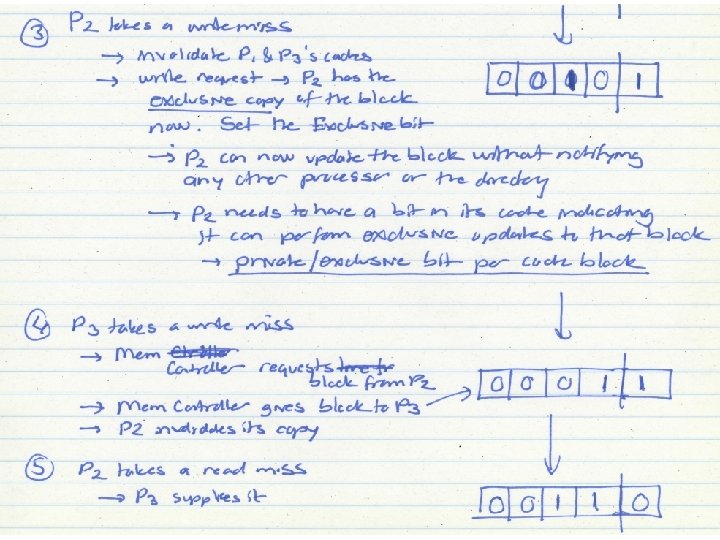 ③ P2 takes a write miss
→ Invalidate P1 & P3's caches
→ write request → P2 has the
exclusive copy of the block
now. Set the Exclusive bit
0 0 1 0 1
→ P2 can now update the block without notifying
any other processor or the directory
→ P2 needs to have a bit in its cache indicating
it can perform exclusive updates to that block
→ private/exclusive bit per cache block
④ P3 takes a write miss
→ Mem Controller requests block from P2
→ Mem Controller gives block to P3
0 0 0 1 1
→ P2 invalidates its copy
⑤ P2 takes a read miss
→ P3 supplies it
0 0 1 1 0